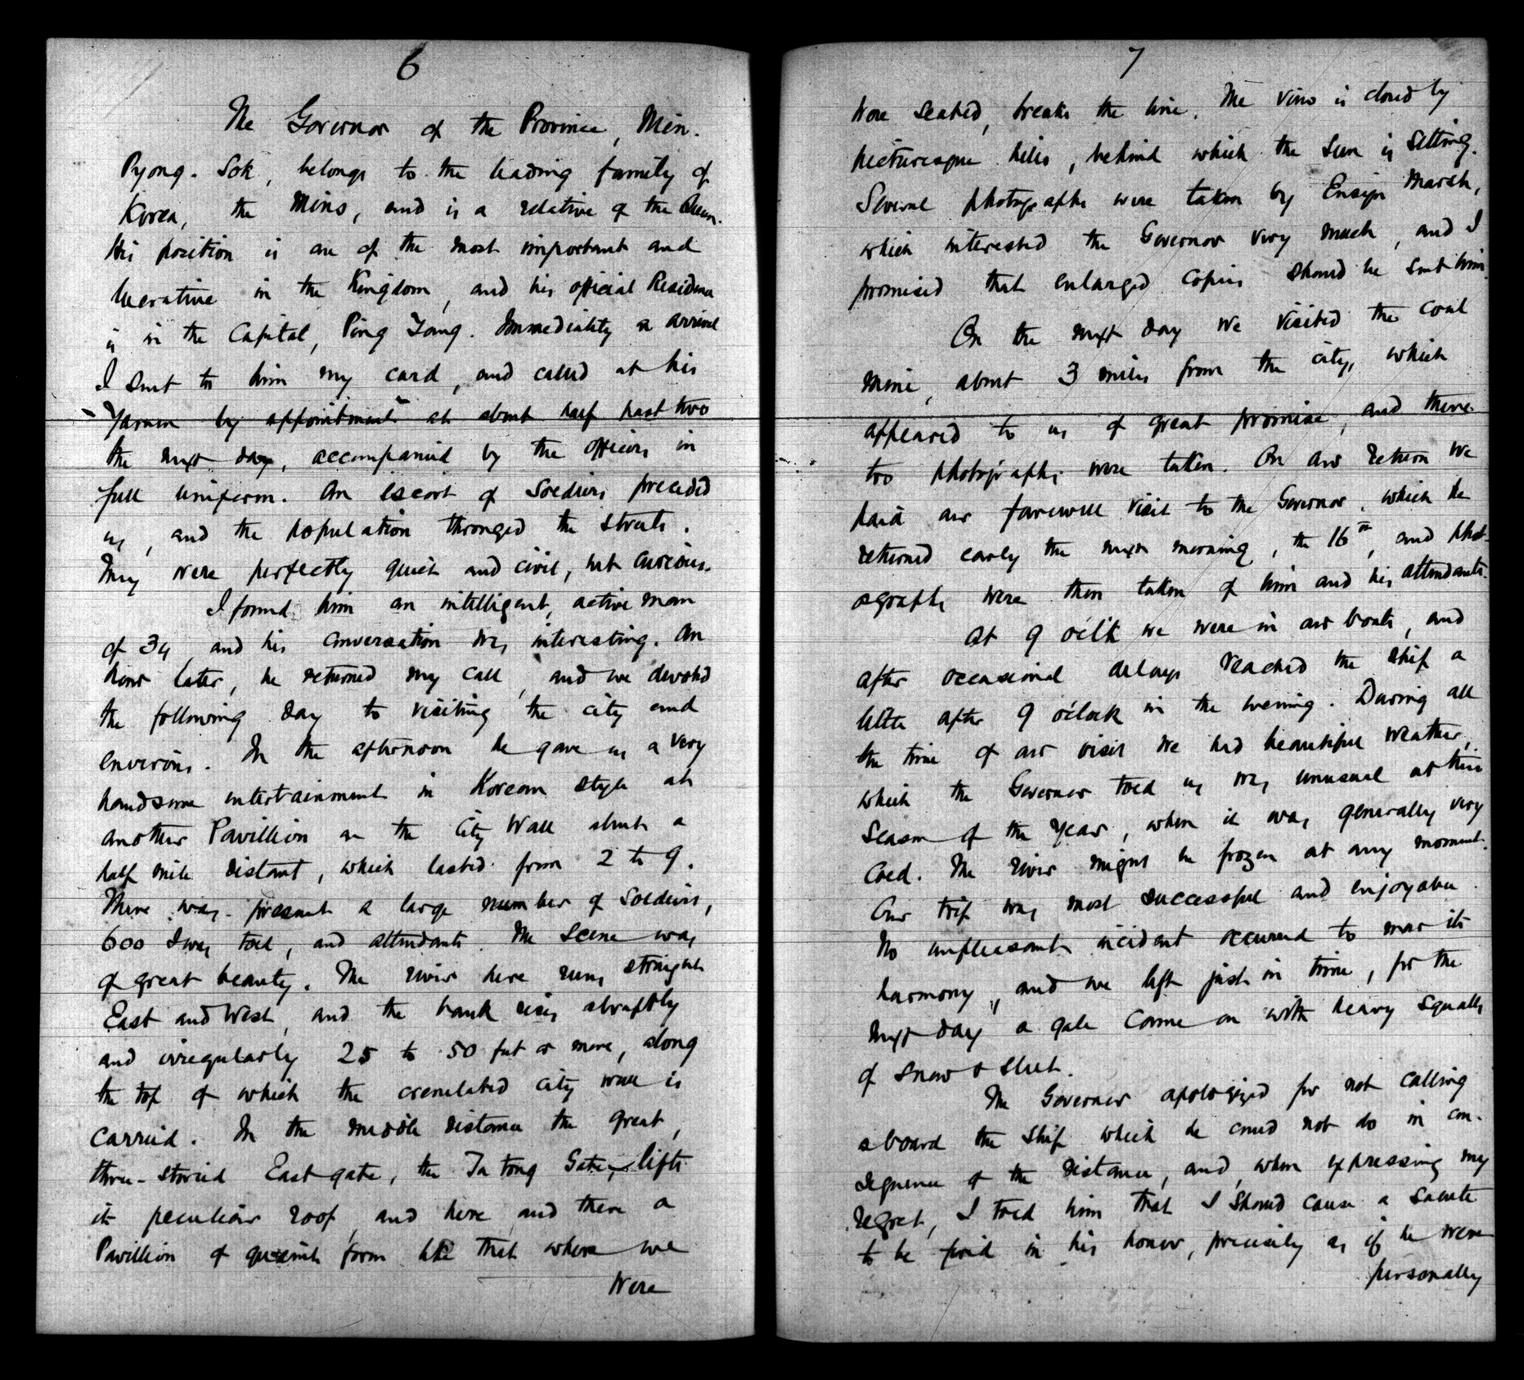 6
The Governor of the Province, Min.
Pyong. Sok, belongs to the leading family of
Korea, the Mins, and is a relative of the Queen.
His position is one of the most important and
lucrative in the Kingdom, and his official Residence
is in the Capital, Ping Yang. Immediately on arrival
I sent to him my card, and called at his
Yamen by appointment at about half past two
the next day, accompanied by the officers in
full uniform. An escort of Soldiers preceded
us, and the population thronged the streets.
They were perfectly quiet and civil, but curious.
I found him an intelligent, active man
of 34 and his conversation was interesting. An
hour later, he returned my call, and we devoted
the following day to visiting the city and
environs. In the afternoon he gave us a very
handsome entertainment in Korean style at
another Pavillion on the City Wall about a
half mile distant, which lasted from 2 to 9.
There was present a large number of Soldiers,
600 I was told, and attendants. The scene was
of great beauty. The river here runs straight
East and West, and the bank rises abruptly
and irregularly 25 to 50 feet or more, along
the top of which the crenulated city wall is
carried. In the middle distance the great,
three-storied East gate, the Ta tong Gate, lifts
its peculiar roof, and here and there a
Pavillion of quaint form like that where we
were
7
were seated, breaks the line. The view is closed by
picturesque hills, behind which the sun is setting.
Several photographs were taken by Ensign Marsh,
which interested the Governor very much, and I
promised that enlarged copies should be sent him.
On the next day we visited the coal
mine, about 3 miles from the city, which
appeared to us of great promise, and there
too photographs were taken. On our return we
paid our farewell visit to the Governor, which he
returned early the next morning, the 16th, and phot-
ographs were then taken of him and his attendants.
At 9 o'clk we were in our boats, and
after occasional delays reached the ship a
little after 9 o'clock in the evening. During all
the time of our visit we had beautiful weather,
which the Governor told us was unusual at this
season of the year, when it was generally very
cold. The river might be frozen at any moment.
Our trip was most successful and enjoyable.
No unpleasant incident occurred to mar its
harmony, and we left just in time, for the
next day a gale came on with heavy squalls
of snow & sleet.
The Governor apologized for not calling
aboard the ship which he could not do in con-
sequence of the distance, and, when expressing my
regret, I told him that I should cause a salute
to be fired in his honor, precisely as if he were
personally